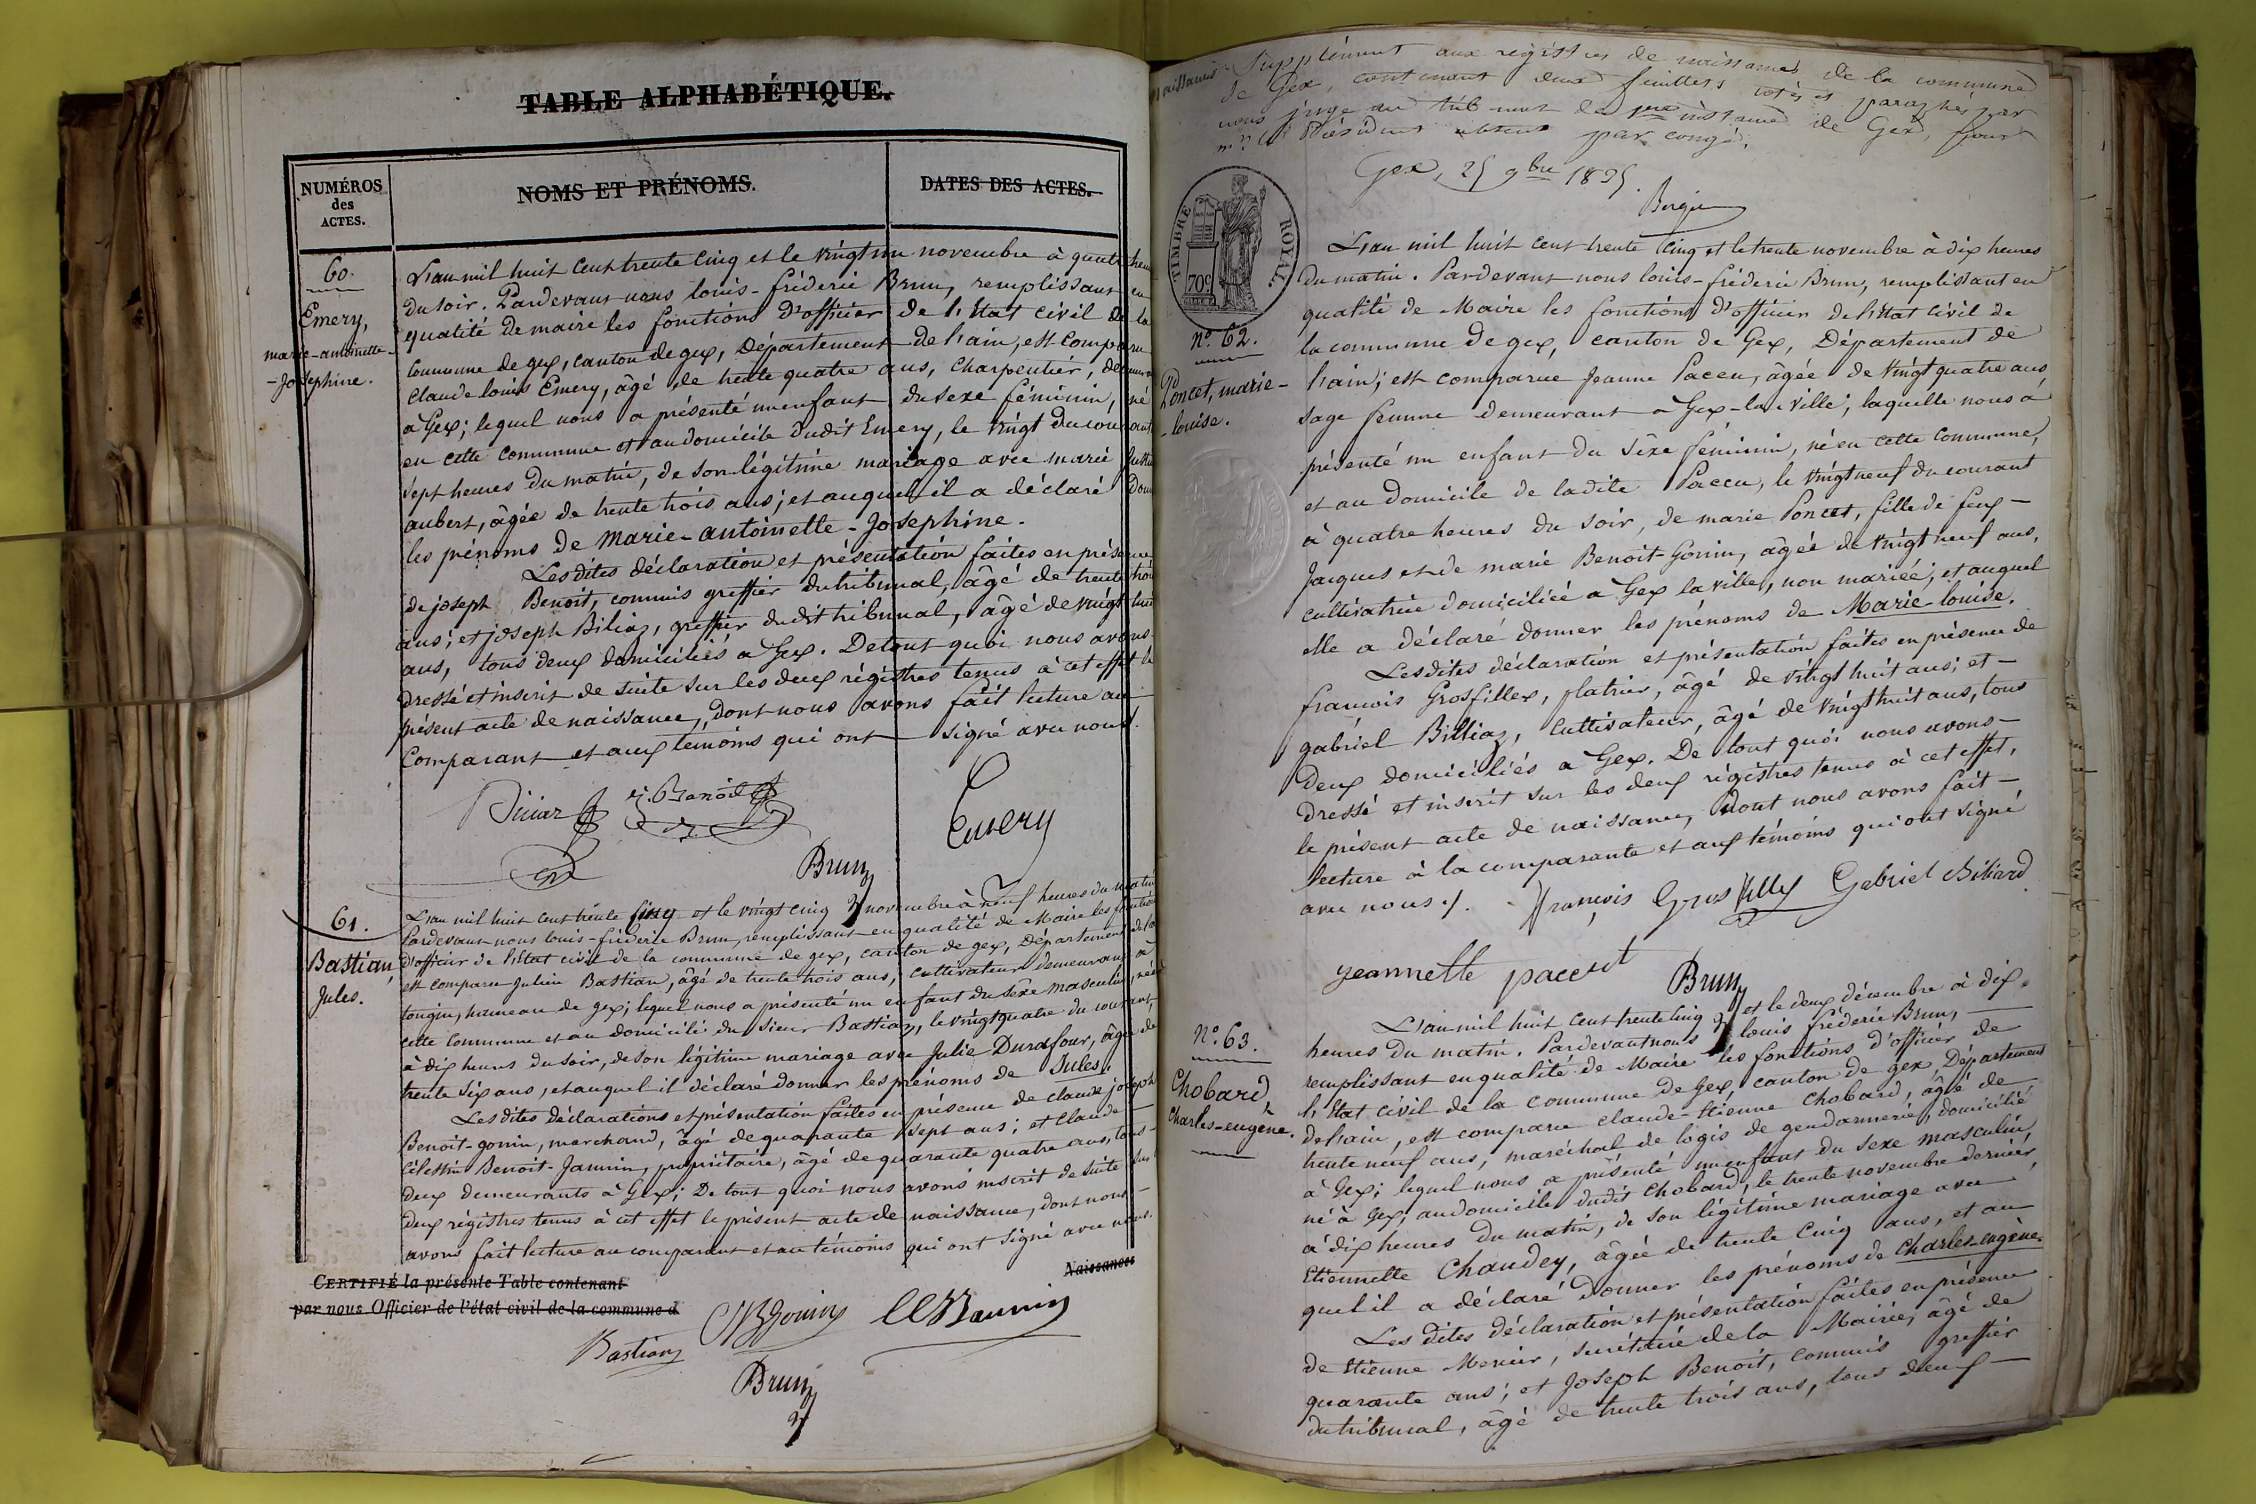 TABLE ALPHABÉTIQUE.
NUMÉROS
des
ACTES.
NOMS ET PRÉNOMS.
DATES DES ACTES.
60.
Emery,
marie-antoinette-
-Josephine.
L'an mil huit cent trente cinq et le vingt un novembre à quatre heu
du soir. Pardevant nous louis-fréderic Brun, remplissant en
qualité de maire les fonctions d'officier de l'état civil de la
commune de gex, canton de gex, Département de l'ain, est comparu
claude louis Emery, âgé de trente quatre ans, charpentier, demeurant
à Gex; lequel nous a présenté un enfant du sexe féminin, né
en cette commune et au domicile dudit Emery, le vingt du courant
sept heures du matin, de son légitime mariage avec marie
aubert, âgée de trente trois ans; et auquel il a déclaré Donn
les prénoms de Marie-antoinette-Josephine.
Les dites déclaration et présentation faites en présence
de joseph Benoit, commis greffier du tribunal, âgé de trente trois
ans; et joseph Biliaz, greffier dudit tribunal, âgé de vingt huit
ans, tous deux domiciliés à Gex. De tout quoi nous avons
dressé et inscrit de suite sur les deux régistres tenus à cet effet le
présent acte de naissance, dont nous avons fait lecture au
Comparant et aux témoins qui ont signé avec nous.
Biliaz J. Benoit Emery
Brun
61.
Bastian,
Jules.
L'an mil huit cent trente cinq et le vingt cinq novembre à neuf heures du matin
Pardevant nous louis-fréderic Brun, remplissant en qualité de Maire les fonctions
d'officier de l'état civil de la commune de gex, canton de gex, Département de l'ain
est comparu Julien Bastian, âgé de trente trois ans, cultivateur demeurant à
tougin, hameau de gex; lequel nous a présenté un enfant du sexe masculin, né en
cette commune et au domicile du sieur Bastian, le vingt quatre du courant,
à dix heures du soir, de son légitime mariage avec Julie Durafour, âgée de
trente six ans, et auquel il déclaré donner les prénoms de Jules.
Les dites déclarations et présentation faites en présence de claude joseph
Benoit-gonin, marchand, âgé de quarante sept ans; et Claude
Célestin Benoit-Jannin, propriétaire, âgé de quarante quatre ans, tous
deux demeurants à Gex; De tout quoi nous avons inscrit de suite sur
deux régistres tenus à cet effet le présent acte de naissance, dont nous
avons fait lecture au comparant et au témoins qui ont signé avec nous.
CERTIFIÉ la présente Table contenant
Naissances
par nous Officier de l'état civil de la commune d
Bastian
Brun
Supplément aux régistres de naissances de la commune
de Gex, contenant deux feuillets cotés et paraphés par
nous juge au tribunal de 1ère instance de Gex, pour
mr le Président absent par congé.
Gex, 25 9bre 1835.
TIMBRE ROYAL
70c
L'an mil huit cent trente cinq et le trente novembre à dix heures
du matin. Pardevant nous louis-fréderic Brun, remplissant en
qualité de Maire les fonctions d'officier de l'état civil de
la commune de gex, canton de Gex, Département de
l'ain; est comparue Jeanne Paccu, âgée de vingt quatre ans
sage femme demeurant à Gex-la-ville; laquelle nous a
présenté un enfant du sexe féminin, né en cette commune,
et au domicile de ladite Paccu, le vingt neuf du courant
à quatre heures du soir, de marie Poncet, fille de feux
Jacques et de marie Benoit-Gonin, âgée de vingt neuf ans,
cultivatrice domiciliée à Gex la ville, non mariée; et auquel
elle a déclaré donner les prénoms de Marie-louise.
Les dites déclaration et présentation faites en présence de
françois Grosfillex, platrier, âgé de vingt huit ans; et
gabriel Billiaz, cultivateur, âgé de vingt huit ans, tous
deux domiciliés à Gex. De tout quoi nous avons
dressé et inscrit sur les deux régistres tenus à cet effet,
le présent acte de naissance, dont nous avons fait
lecture à la comparante et aux témoins qui ont signé
avec nous.
no. 62.
Poncet, marie-
-louise.
François Grosfillex Gabriel Biliard
Jeannette paccut
Brun
No. 63.
Chobard,
Charles-eugène.
L'an mil huit cent trente cinq et le deux décembre à dix
heures du matin. Pardevant nous louis fréderic Brun,
remplissant en qualité de Maire les fonctions d'officier de
l'état civil de la commune de Gex, canton de gex, Département
de l'ain, est comparu claude-étienne Chobard, âgé de
trente neuf ans, maréchal de logis de gendarmerie, domicilié
à Gex; lequel nous a présenté un enfant du sexe masculin,
né à Gex, au domicile dudit Chobard, le trente novembre dernier,
à dix heures du matin, de son légitime mariage avec
Etiennette Chaudey, âgée de trente cinq ans, et au
quel il a déclaré donner les prénoms de charles-eugène.
Les dites déclaration et présentation faites en présence
de Etienne Mercier, secrétaire de la Mairie, âgé de
quarante ans; et Joseph Benoit, commis greffier
du tribunal, âgé de trente trois ans, tous deux